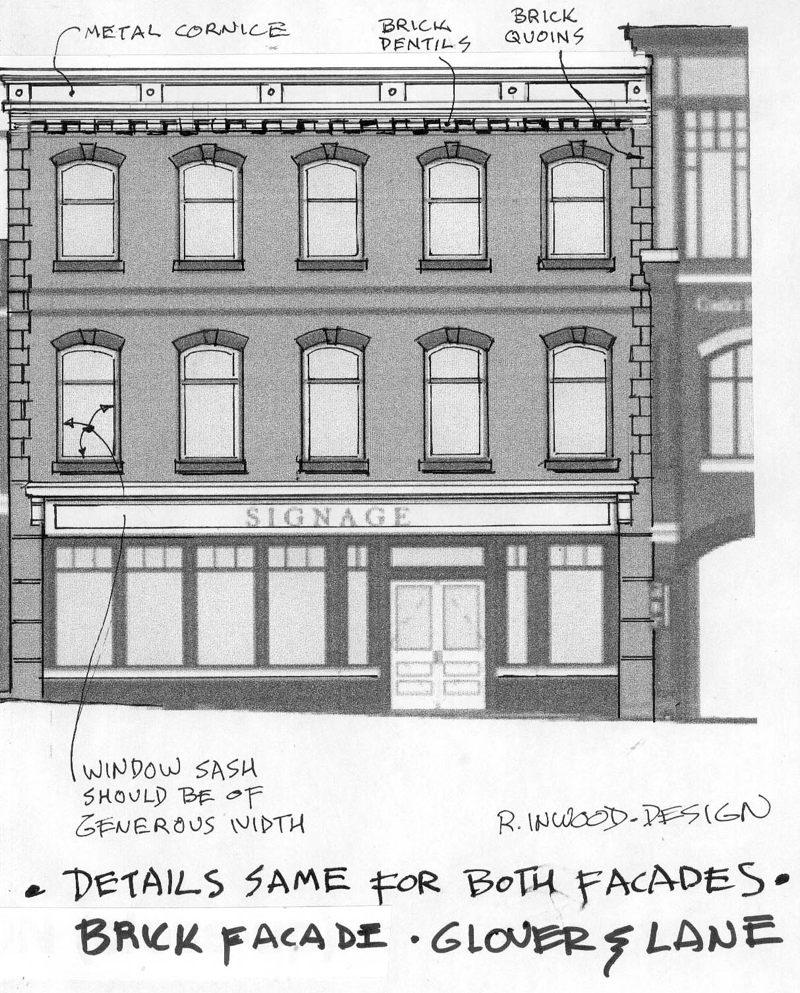 METAL CORNICE
BRICK
DENTILS
BRICK
QUOINS
SIGNAGE
WINDOW SASH
SHOULD BE OF
GENEROUS WIDTH
R. INWOOD-DESIGN
• DETAILS SAME FOR BOTH FACADES •
BRICK FACADE • GLOVER & LANE